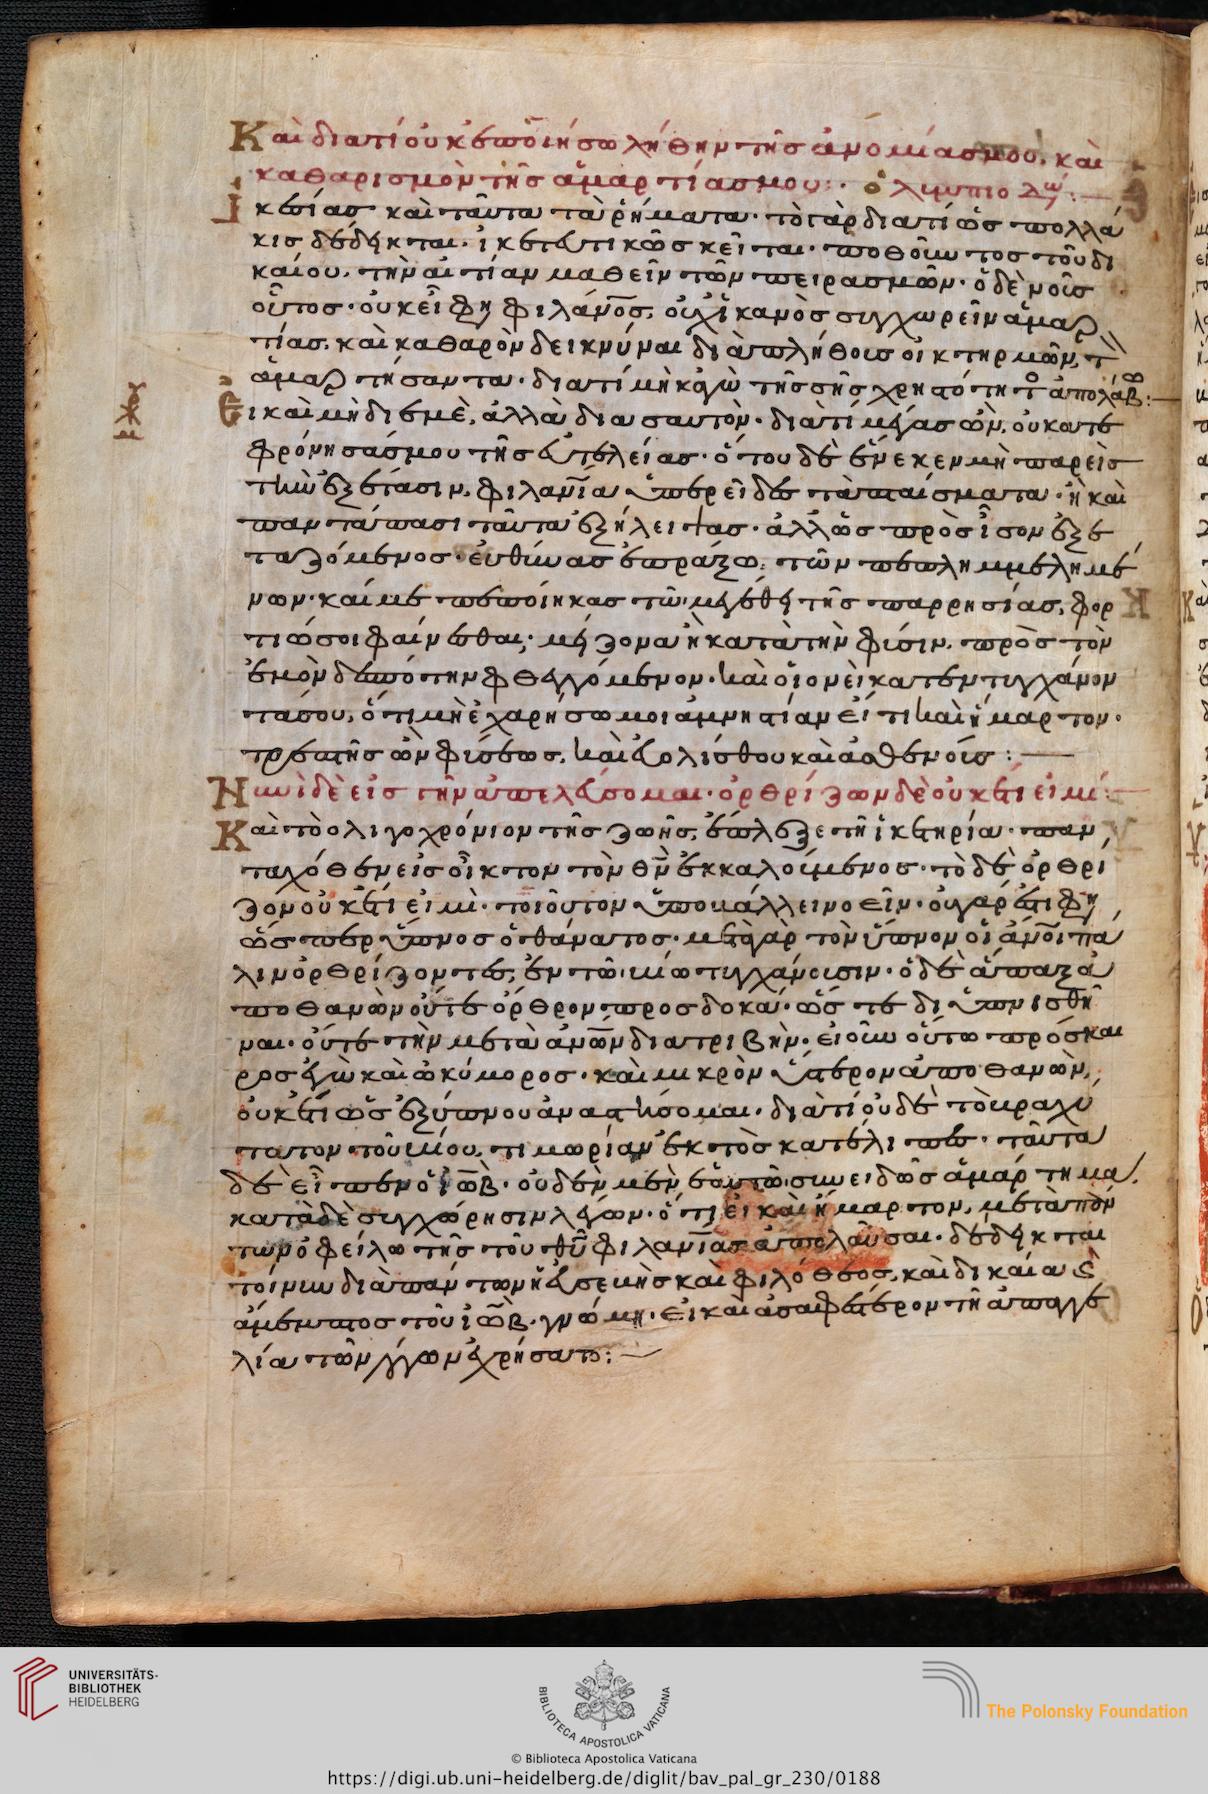 Καὶ διατί οὐκ ἐποιήσω λήθην τῆς ἀνομίας μου, καὶ
καθαρισμὸν τῆς ἁμαρτίας μου:· ὀλυμπιοδω:—
Ἱκεσίας καὶ ταῦτα τὰ ῥήματα· τὸ γὰρ διατί ὡς πολλά
κις δέδεικται, ἱκετευτικῶς κεῖται· ποθοῦντος τοῦ δι
καίου, τὴν αἰτίαν μαθεῖν τῶν πειρασμῶν· ὁ δὲ νοῦς
οὗτος· οὐκ εἶ φη φιλάνος, οὐχ ἱκανὸς συγχωρεῖν ἁμαρ
τίας, καὶ καθαρὸν δεικνύναι διὰ πλήθους οἰκτηρμῶν, τὸ
ἁμαρτήσαντα· διατί μὴ κἀγὼ τῆς σῆς χρηστότητο ἀπολάβ:—
Εἰ καὶ μὴ δι ἐμὲ, ἀλλὰ δια σαυτόν· διὰ τί μέγας ὢν, οὐ κατε
φρόνησάς μου τῆς εὐτελείας· ὅτου δὲ ἕνεκεν μὴ παρεὶς
τὴν ἐξέτασιν, φιλανία ὑπερεῖδες τὰ πταίσματα· ἢ καὶ
παντάπασι ταῦτα ἐξήλειψας· ἀλλ ὡς πρὸς ἶσον ἐξε
ταζόμενος· εὐθύνας ἐπράξω, τῶν πεπλημμελημέ
νων· καί με πεποίηκας τῶ μεγέθει τῆς παρρησίας, φορ
τίω σοι φαίνεσθαι, μείζονα ἢ κατὰ τὴν φύσιν, πρὸς τὸν
ἐμὸν δεσπότην φθεγγόμενον· καὶ οἱονεὶ κατεντυγχάνον
τά σου, ὅτι μὴ ἐχαρήσω μοι ἀμνηστίαν εἴ τι καὶ ἥμαρτον·
τρεπτῆς ὢν φύσεως, καὶ εὐολίσθου καὶ ἀσθενοῦς:—
Νυνὶ δὲ εἰς γῆν ἀπελεύσομαι· ὀρθρίζων δὲ οὐκέτι εἰμί:—
Καὶ τὸ ολιγοχρόνιον τῆς ζωῆς, ἔπλεξε τῆ ἱκετηρία· παν
ταχόθεν εἰς οἶκτον τὸν θν ἐκκαλούμενος· τὸ δὲ ὀρθρί
ζον οὐκέτι εἰμὶ· τοιοῦτον ὑποβάλλει νοεῖν· οὐ γάρ ἐστι φη
ὥσπερ ὕπνος ὁ θάνατος· μετὰ γὰρ τὸν ὕπνον οἱ ἄνοι πά
λιν ὀρθρίζοντες, ἐν τῶ βίω τυγχάνουσιν· ὁ δὲ ἅπαξ ἀ
ποθανὼν οὔτε ὄρθρον προσδοκᾶ· ὥστε διυπνισθῆ
ναι· οὔτε τὴν μετὰ ἀνων διατριβήν· εἰ οὖν οὕτω πρόσκαι
ρος ἐγὼ καὶ ὠκύμορος· καὶ μικρὸν ὕστερον ἀποθανὼν,
οὐκέτι ὡς ἐξ ὕπνου ἀναστήσομαι· διὰ τί οὐδὲ τὸ βραχύ
τατον τοῦ βίου, τιμωρίαν ἐκτὸς κατέλιπες· ταῦτα
δὲ εἶπεν ὁ ἰὼβ· οὐδὲν μὲν ἑαυτῶ συνειδὼς ἁμάρτημα,
κατὰ δὲ συγχώρησιν λέγων· ὅτι εἰ καὶ ἥμαρτον, μετὰ πάν
των ὀφείλω τῆς τοῦ θυ φιλανίας ἀπολαῦσαι· δέδεικται
τοίνυν διὰ πάντων ἡ εὐσεβὴς καὶ φιλόθεος, καὶ δικαία καὶ
ἄμεμπτος τοῦ ἰὼβ γνώμη· εἰ καὶ ἀσαφέστερον τῆ ἀπαγγε
λία τῶν λόγων ἐχρήσατο:—
UNIVERSITÄTS-
BIBLIOTHEK
HEIDELBERG
BIBLIOTECA APOSTOLICA VATICANA
The Polonsky Foundation
© Biblioteca Apostolica Vaticana
https://digi.ub.uni-heidelberg.de/diglit/bav_pal_gr_230/0188